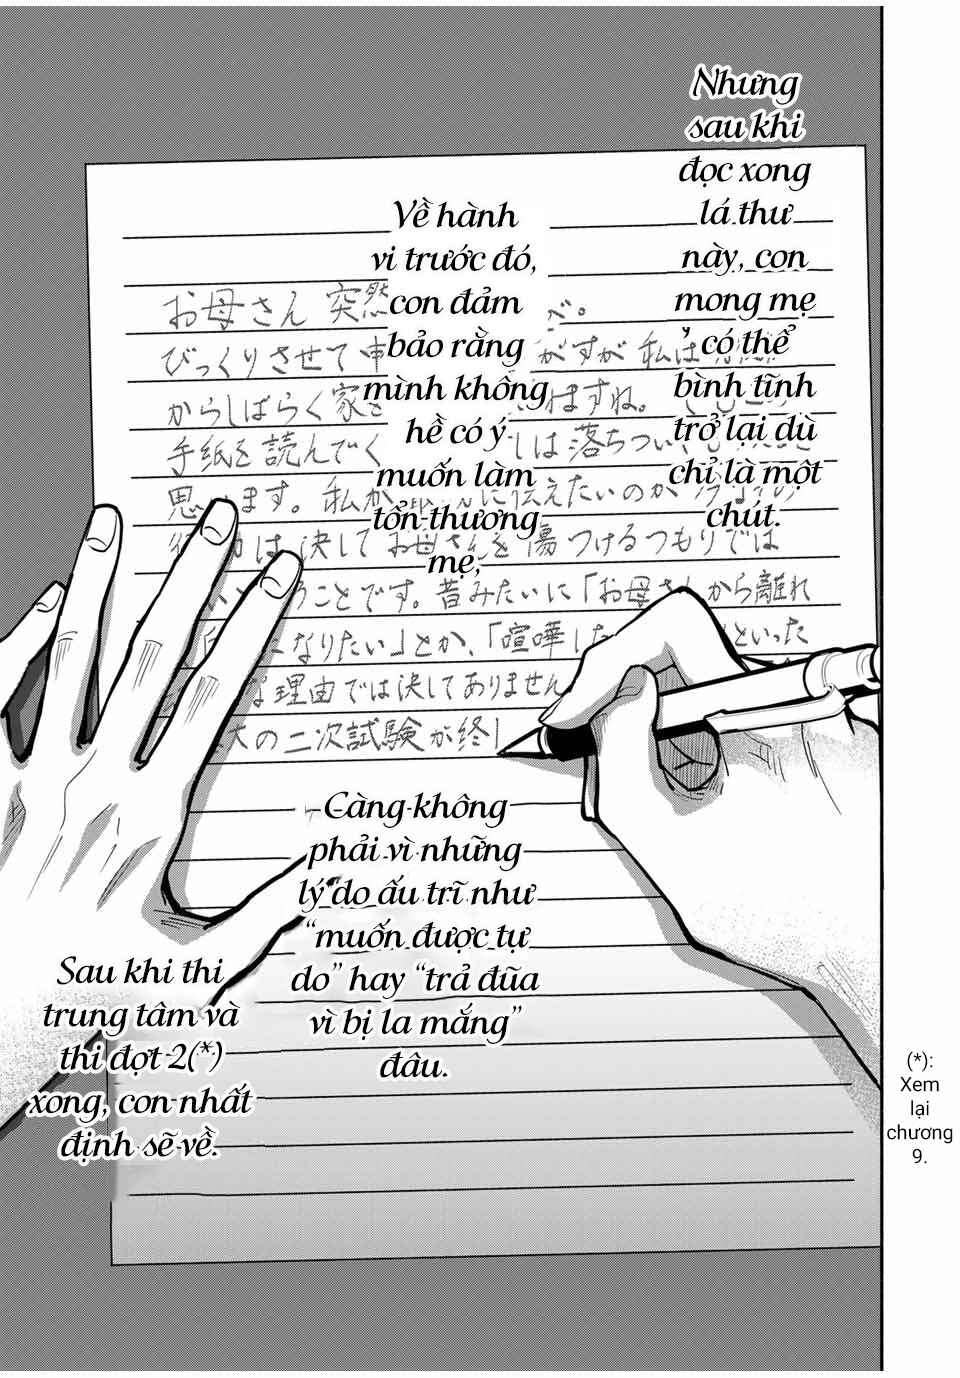 Nhưng
sau khi
đọc xong
lá thư
này, con
mong mẹ
có thể
bình tĩnh
trở lại dù
chỉ là một
chút.
Về hành
vi trước đó,
con đảm
bảo rằng
mình không
hề có ý
muốn làm
tổn thương
mẹ,
お母さん 突然
びっくりさせて申 がすが 私は
からしばらく家を ますね。
手紙を読んでく しは落ちつい
思 ます。私が に伝えたいのが
は決してお母さんを傷つけるつもりでは
うことです。昔みたいに「お母さ から離れ
になりたい」とか、「喧嘩した といった
な理由では決してありません
大の二次試験が終
Càng không
phải vì những
lý do ấu trĩ như
“muốn được tự
do” hay “trả đũa
vì bị la mắng”
đâu.
Sau khi thi
trung tâm và
thi đợt 2(*)
xong, con nhất
định sẽ về.
(*):
Xem
lại
chương
9.